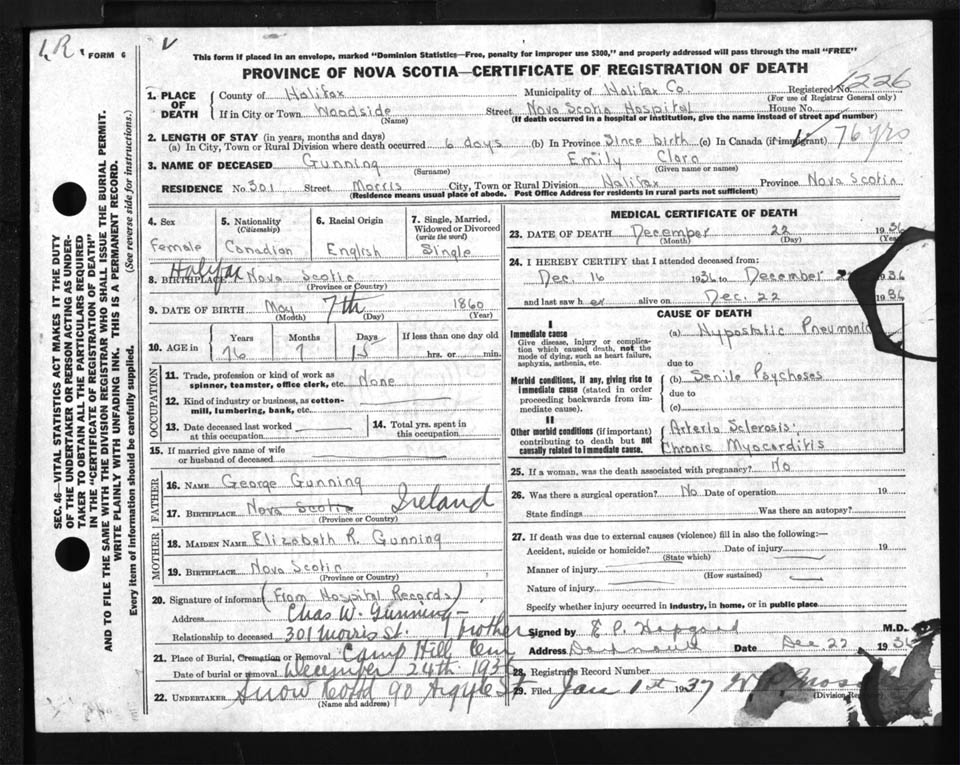 1R FORM 6
V
This form if placed in an envelope, marked "Dominion Statistics—Free, penalty for improper use $300," and properly addressed will pass through the mail "FREE"
PROVINCE OF NOVA SCOTIA—CERTIFICATE OF REGISTRATION OF DEATH
1226
1. PLACE OF DEATH
County of Halifax Municipality of Halifax Co. Registered No.
(For use of Registrar General only)
If in City or Town Woodside Street Nova Scotia Hospital House No.
(Name) (If death occurred in a hospital or institution, give the name instead of street and number)
2. LENGTH OF STAY (in years, months and days)
(a) In City, Town or Rural Division where death occurred 6 days (b) In Province Since birth (c) In Canada (if immigrant) 76 yrs
3. NAME OF DECEASED Gunning Emily Clara
(Surname) (Given name or names)
RESIDENCE No. 301 Street Morris City, Town or Rural Division Halifax Province Nova Scotia
(Residence means usual place of abode. Post Office Address for residents in rural parts not sufficient)
4. Sex
Female
5. Nationality
(Citizenship)
Canadian
6. Racial Origin
English
7. Single, Married, Widowed or Divorced
(write the word)
Single
8. BIRTHPLACE Halifax Nova Scotia
(Province or Country)
9. DATE OF BIRTH May 7th 1860
(Month) (Day) (Year)
10. AGE in
Years Months Days If less than one day old
76 7 15 hrs. or min.
OCCUPATION
11. Trade, profession or kind of work as spinner, teamster, office clerk, etc. None
12. Kind of industry or business, as cotton-mill, lumbering, bank, etc.
13. Date deceased last worked at this occupation
14. Total yrs. spent in this occupation
15. If married give name of wife or husband of deceased
FATHER
16. NAME George Gunning
17. BIRTHPLACE Nova Scotia Ireland
(Province or Country)
MOTHER
18. MAIDEN NAME Elizabeth R. Gunning
19. BIRTHPLACE Nova Scotia
(Province or Country)
20. Signature of informant (From Hospital Records)
Chas W. Gunning
Address
Relationship to deceased 301 Morris St. brother
21. Place of Burial, Cremation or Removal Camp Hill Cem
Date of burial or removal December 24th 1936
22. UNDERTAKER Snow 90 Argyle St
(Name and address)
MEDICAL CERTIFICATE OF DEATH
23. DATE OF DEATH December 22 1936
(Month) (Day) (Year)
24. I HEREBY CERTIFY that I attended deceased from:
Dec. 16 1936 to December 1936
and last saw her alive on Dec. 22 1936
CAUSE OF DEATH
I
Immediate cause
Give disease, injury or complication which caused death, not the mode of dying, such as heart failure, asphyxia, asthenia, etc.
(a) Hypostatic Pneumonia
due to
Morbid conditions, if any, giving rise to immediate cause (stated in order proceeding backwards from immediate cause).
(b) Senile Psychoses
due to
(c)
II
Other morbid conditions (if important) contributing to death but not causally related to immediate cause.
Arterio Sclerosis
Chronic Myocarditis
25. If a woman, was the death associated with pregnancy? No
26. Was there a surgical operation? No Date of operation 19
State findings Was there an autopsy?
27. If death was due to external causes (violence) fill in also the following:—
Accident, suicide or homicide? Date of injury 19
(State which)
Manner of injury
(How sustained)
Nature of injury
Specify whether injury occurred in industry, in home, or in public place
Signed by E P. Hopgood M.D.
Address Dartmouth Date Dec. 22 1936
28. Registrar's Record Number
29. Filed Jan 1st 1937
(Division Registrar)
SEC. 46—VITAL STATISTICS ACT MAKES IT THE DUTY OF THE UNDERTAKER OR PERSON ACTING AS UNDERTAKER TO OBTAIN ALL THE PARTICULARS REQUIRED IN THE "CERTIFICATE OF REGISTRATION OF DEATH" AND TO FILE THE SAME WITH THE DIVISION REGISTRAR WHO SHALL ISSUE THE BURIAL PERMIT.
WRITE PLAINLY WITH UNFADING INK. THIS IS A PERMANENT RECORD.
Every item of information should be carefully supplied. (See reverse side for instructions.)